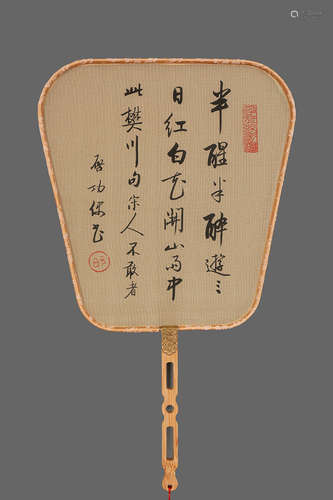 半醒半醉遊三
日红白花開山雨中
此樊川句宋人不敢者
启功